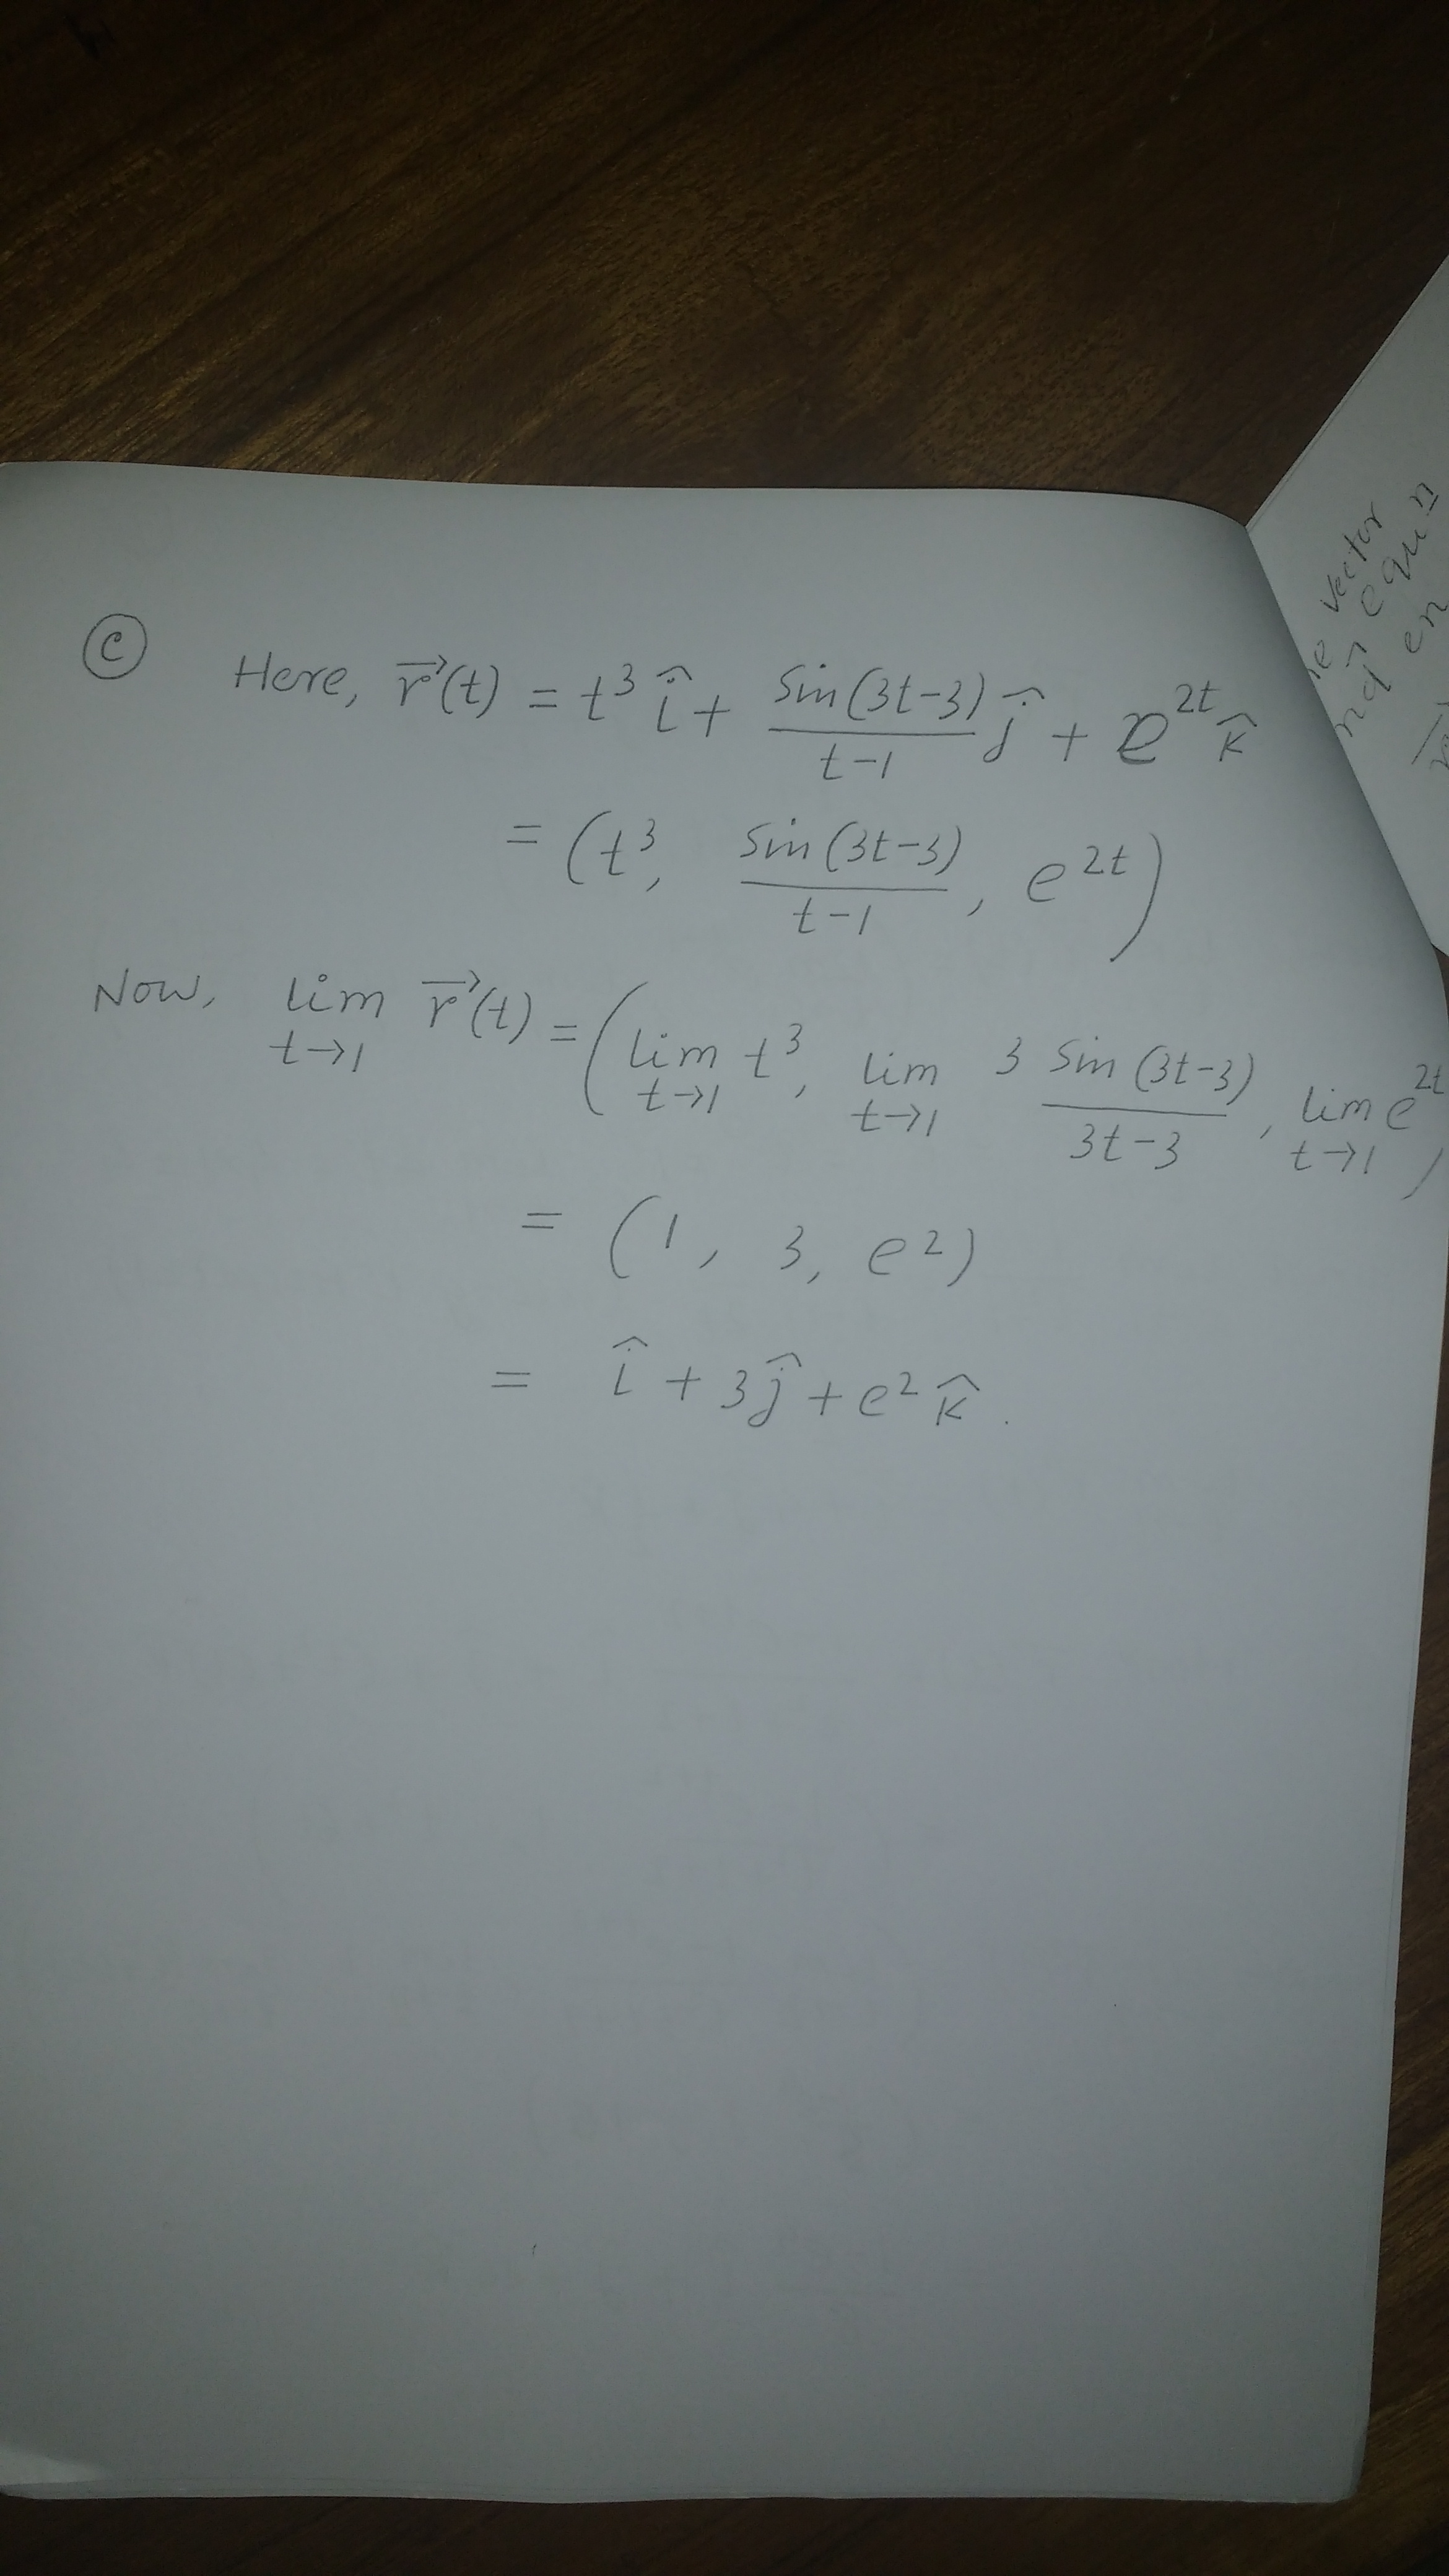 ⓒ Here, r⃗(t) = t³ î + sin(3t-3)/(t-1) ĵ + e^{2t} k̂
= (t³, sin(3t-3)/(t-1), e^{2t})
Now, lim_{t→1} r⃗(t) = (lim_{t→1} t³, lim_{t→1} 3 sin(3t-3)/(3t-3), lim_{t→1} e^{2t})
= (1, 3, e²)
= î + 3ĵ + e² k̂.
vector
equn
en